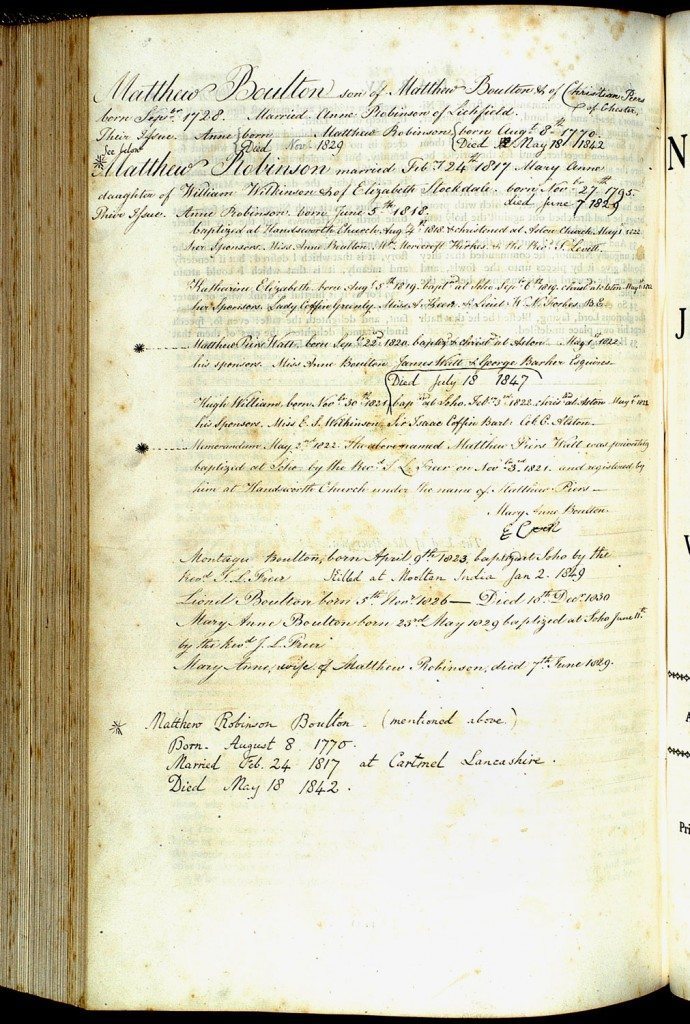 Matthew Boulton son of Matthew Boulton & of Christian Piers
of Chester
born Sepbr 1728. Married Anne Robinson of Lichfield.
Their Issue. Anne born Matthew Robinson born Augst 8th 1770.
See below Died Novr 1829 Died May 18 1842
Matthew Robinson married Feby 24th 1817 Mary Anne
daughter of William Wilkinson & of Elizabeth Stockdale. born Novbr 27th 1795.
died June 7 1829
Their Issue. Anne Robinson born June 5th 1818.
baptized at Handsworth Church Aug 4th 1818 & christened at Aston Church May 1 1822
her Sponsors. Miss Anne Boulton, Wm Forbes & the Revd S. Levett.
Katharine Elizabeth born Augst 5th 1819. bapt at Soho Sepr 6th 1819. christd at Aston May 1st 1822
her Sponsors. Lady Coffin Greenly. Miss A. Keen & Lieut W. N. Forbes
* Matthew Piers Watt, born Sepbr 22nd 1820. baptzd & christd at Aston May 1st 1822
his sponsors. Miss Anne Boulton James Watt & George Barker Esquires
Died July 18 1847
Hugh William, born Novbr 30th 1821 bapd at Soho Feby 3rd 1822. chrisd at Aston May 1st 1822
his Sponsors. Miss E. S. Wilkinson, Sir Isaac Coffin Bart. Col. C. Alston.
* Memorandum May 2nd 1822. The above named Matthew Piers Watt was privately
baptized at Soho by the Revd T. L. Freer on Novbr 3rd 1821. and registered by
him at Handsworth Church under the name of Matthew Piers —
Mary Anne Boulton
Montagu Boulton, born April 9th 1823, baptzd at Soho by the
Revd T. L. Freer Killed at Mooltan India Jan 2. 1849
Lionel Boulton born 5th Novr 1826 — Died 10th Decr 1830
Mary Anne Boulton born 23rd May 1829 baptized at Soho June 11th
by the Revd J. L. Freer
Mary Anne, wife of Matthew Robinson, died 7th June 1829.
* Matthew Robinson Boulton. (mentioned above)
Born. August 8 1770.
Married Feb. 24 1817 at Cartmel Lancashire.
Died May 18 1842.